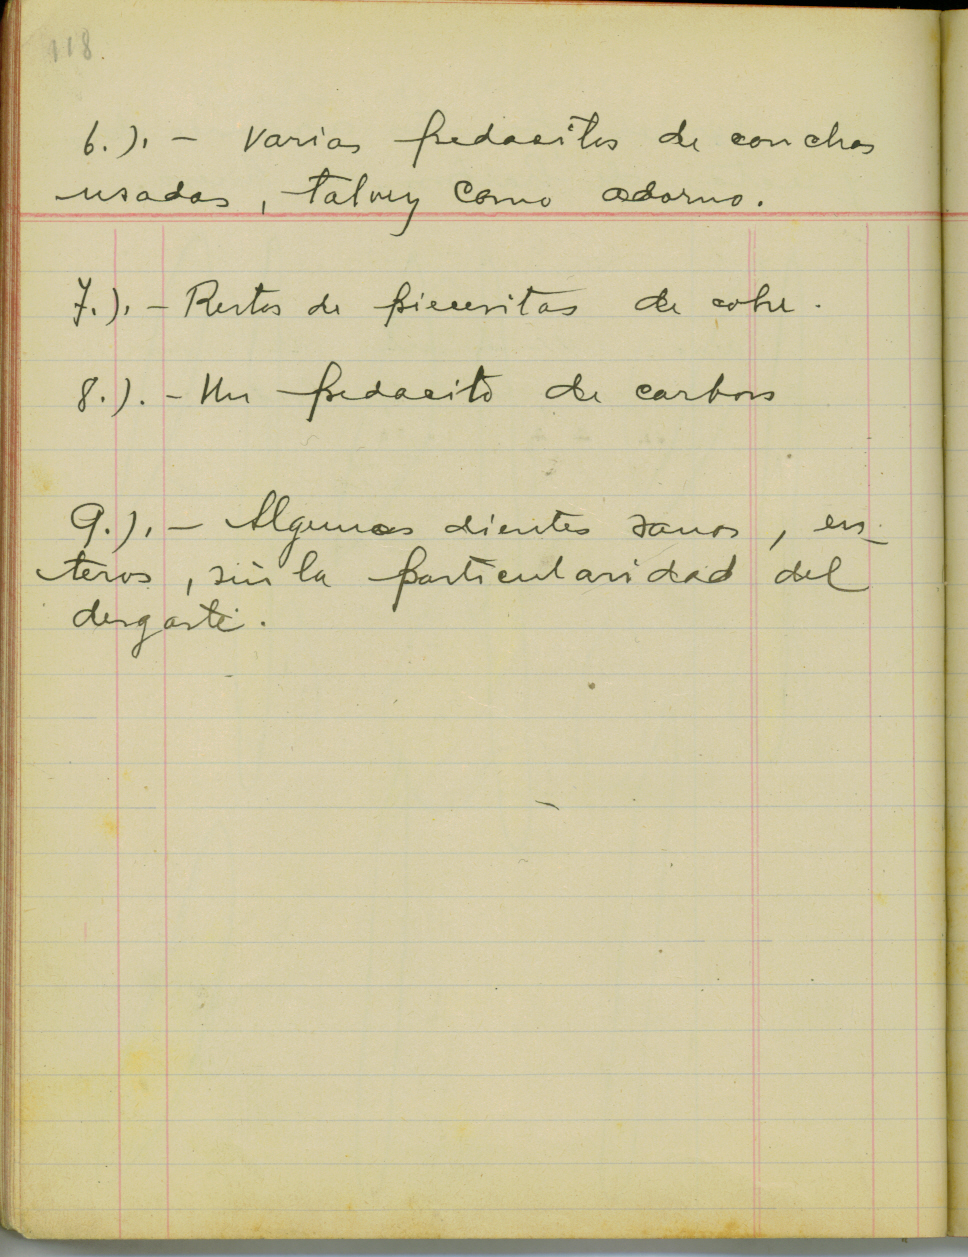 118.
6.). - Varios pedacitos de conchas
usadas, talvez como adorno.
7.). - Restos de piececitas de cobre.
8.). - Un pedacito de carbon
9.). - Algunos dientes sanos, en-
teros, sin la particularidad del
desgaste.